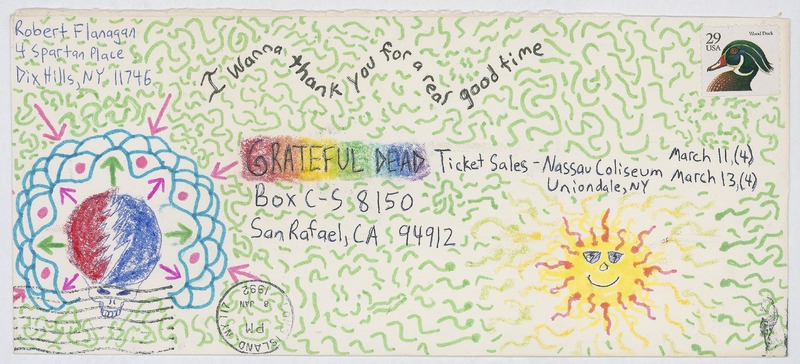 Robert Flanagan
4 Spartan Place
Dix Hills, NY 11746
I wanna thank you for a real good time
29
USA
Wood Duck
GRATEFUL DEAD Ticket Sales - Nassau Coliseum March 11, (4)
Uniondale, NY March 13, (4)
Box C-S 8150
San Rafael, CA 94912
ISLAND NY 117
PM
8 JAN
1992